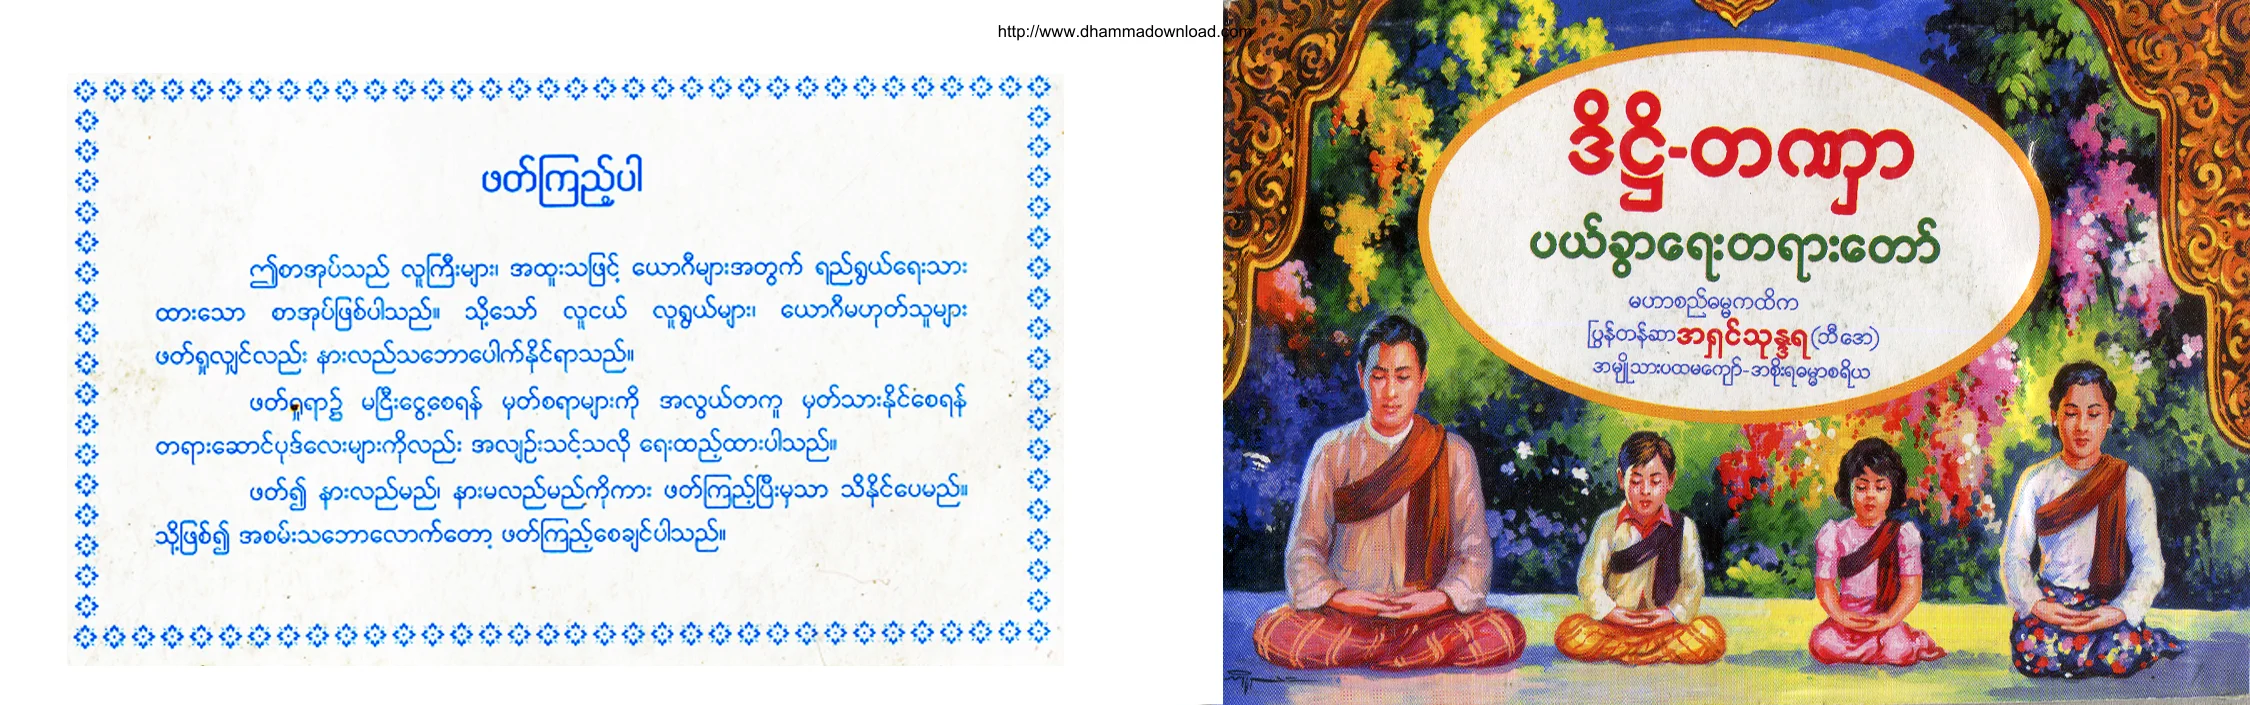 http://www.dhammadownload.com
ဖတ်ကြည့်ပါ
ဤစာအုပ်သည် လူကြီးများ၊ အထူးသဖြင့် ယောဂီများအတွက် ရည်ရွယ်ရေးသား
ထားသော စာအုပ်ဖြစ်ပါသည်။ သို့သော် လူငယ် လူရွယ်များ၊ ယောဂီမဟုတ်သူများ
ဖတ်ရှုလျှင်လည်း နားလည်သဘောပေါက်နိုင်ရာသည်။
ဖတ်ရှုရာ၌ မငြီးငွေ့စေရန် မှတ်စရာများကို အလွယ်တကူ မှတ်သားနိုင်စေရန်
တရားဆောင်ပုဒ်လေးများကိုလည်း အလျဉ်းသင့်သလို ရေးထည့်ထားပါသည်။
ဖတ်၍ နားလည်မည်၊ နားမလည်မည်ကိုကား ဖတ်ကြည့်ပြီးမှသာ သိနိုင်ပေမည်။
သို့ဖြစ်၍ အစမ်းသဘောလောက်တော့ ဖတ်ကြည့်စေချင်ပါသည်။
ဒိဋ္ဌိ-တဏှာ
ပယ်ခွာရေးတရားတော်
မဟာစည်ဓမ္မကထိက
ပြွန်တန်ဆာအရှင်သုန္ဒရ(ဘီအေ)
အမျိုသားပထမကျော်-အစိုးရဓမ္မာစရိယ